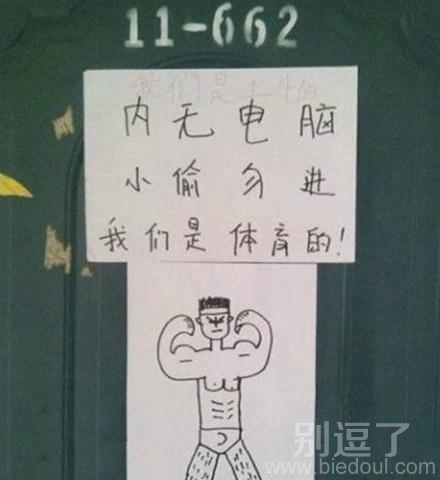 11-662
我们是土牛的
内无电脑
小偷勿进
我们是体育的!
别逗了
www.biedoul.com